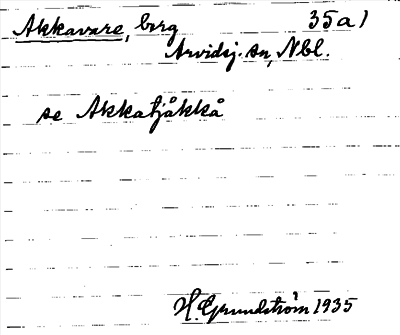 Akkavare, berg 35a1
Arvidsj. sn, Nbl.
se Akkatjåkkå
H. Grundström 1935